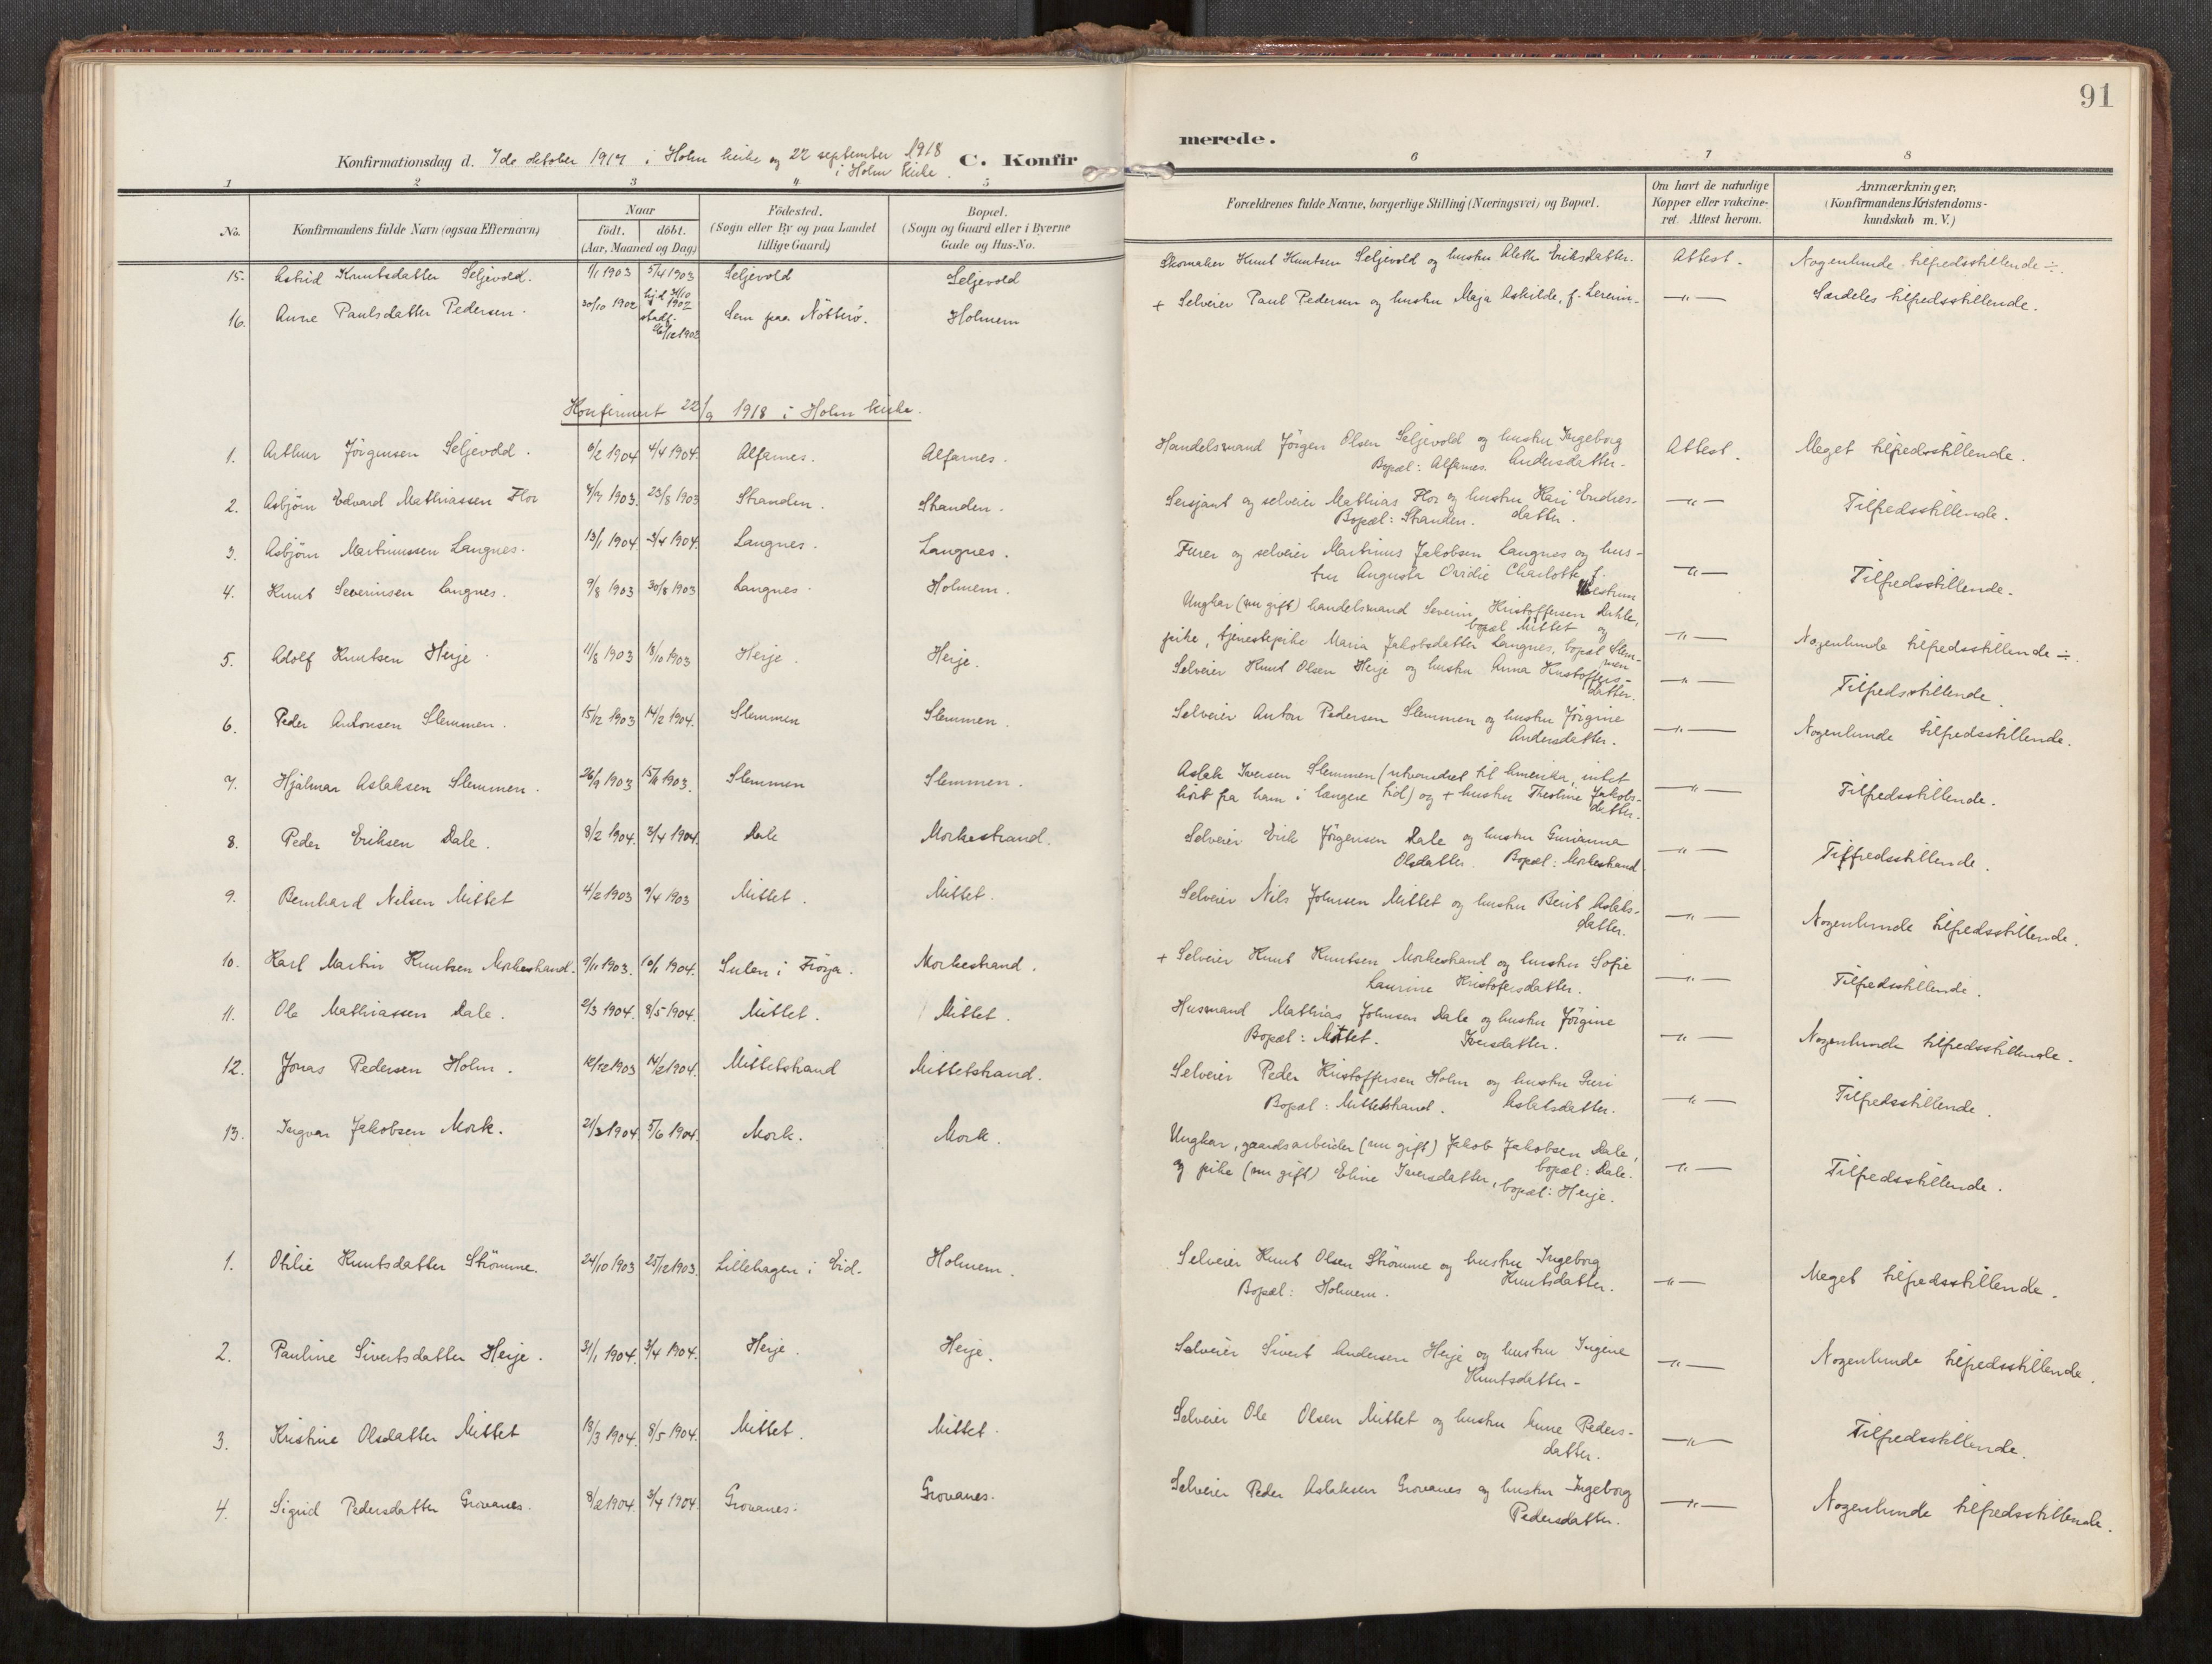 91
Konfirmationsdag d. 7de oktober 1917 i Holm kirke og 22 september 1918
i Holm kirke.
C. Konfir
merede.
1 2 3 4 5 6 7 8
No.
Konfirmandens fulde Navn (ogsaa Efternavn)
Naar
födt. döbt.
(Aar, Maaned og Dag)
Födested.
(Sogn eller By og paa Landet
tillige Gaard)
Bopæl.
(Sogn og Gaard eller i Byerne
Gade og Hus-No.
Forældrenes fulde Navne, borgerlige Stilling (Næringsvei) og Bopæl.
Om havt de naturlige
Kopper eller vakcine-
ret. Attest herom.
Anmærkninger.
(Konfirmandens Kristendoms-
kundskab m. V.)
15. Astrid Knutsdatter Seljevold. 1/1 1903 5/4 1903 Seljevold Seljevold Skomaker Knut Knutsen Seljevold og hustru Alette Eriksdatter. Attest. Nogenlunde tilfredsstillende ÷.
16. Anne Paulsdatter Pedersen. 30/10 1902 hjd 31/10 1902
stadf.
26/12 1902
Sem paa Nötterö. Holmem + Selveier Paul Pedersen og hustru Maja Askilde, f. -"- Særdeles tilfredsstillende.
Konfirmert 22/9 1918 i Holm kirke.
1. Arthur Jörgensen Seljevold. 6/2 1904 4/4 1904. Alfarnes. Alfarnes. Handelsmand Jörgen Olsen Seljevold og hustru Ingeborg
Bopæl: Alfarnes. Andersdatter. Attest. Meget tilfredsstillende.
2. Asbjörn Edvard Mathiassen Flor 7/7 1903. 23/8 1903 Stranden. Stranden. Sersjant og selveier Mathias Flor og hustru Kari Endres-
Bopæl: Stranden. datter. -"- Tilfredsstillende.
3. Asbjörn Martinussen Langnes. 13/1 1904 3/4 1904. Langnes. Langnes. Furer og selveier Martinus Jakobsen Langnes og hus-
tru Augusta Ovidie Charlotte f.
Westrum -"- Tilfredsstillende.
4. Knut Severinsen Langnes. 9/8 1903 30/8 1903 Langnes. Holmem. Ungkar (nu gift) handelsmand Severin Kristoffersen Dahle,
bopæl Mittet og
pike, tjenestepike Maria Jakobsdatter Langnes, bopæl Slem-
men -"- Nogenlunde tilfredsstillende ÷.
5. Adolf Knutsen Herje 11/8 1903 18/10 1903 Herje. Herje. Selveier Knut Olsen Herje og hustru Anna Kristoffers-
datter. -"- Tilfredsstillende.
6. Peder Antonsen Slemmen. 15/12 1903 14/2 1904. Slemmen Slemmen. Selveier Anton Pedersen Slemmen og hustru Jörgine
Andersdatter. -"- Nogenlunde tilfredsstillende.
7. Hjalmar Aslaksen Slemmen. 26/9 1903 15/11 1903. Slemmen Slemmen. Aslak Iversen Slemmen (utvandret til Amerika, intet
hört fra ham i længere tid) og + hustru Jakobs-
datter. -"- Tilfredsstillende.
8. Peder Eriksen Dale. 8/2 1904. 3/4 1904. Dale Morkestrand. Selveier Erik Jörgensen Dale og hustru Gurianna
Olsdatter. Bopæl: Morkestrand -"- Tilfredsstillende.
9. Bernhard Nilsen Mittet 4/2 1903 9/4 1903 Mittet. Mittet. Selveier Nils Johnsen Mittet og hustru Berit Aslaks-
datter. -"- Nogenlunde tilfredsstillende.
10. Karl Martin Knutsen Morkestrand. 9/11 1903. 10/1 1904. Sulen i Fröya. Morkestrand. + Selveier Knut Knutsen Morkestrand og hustru Sofie
Laurine Kristofersdatter. -"- Tilfredsstillende.
11. Ole Mathiassen Dale. 2/3 1904. 8/5 1904. Mittet. Mittet. Husmand Mathias Johnsen Dale og hustru Jörgine
Bopæl: Mittet. Iversdatter. -"- Nogenlunde tilfredsstillende.
12. Jonas Pedersen Holm. 12/12 1903 14/2 1904. Mittetstrand Mittetstrand. Selveier Peder Kristoffersen Holm og hustru Guri
Bopæl: Mittetstrand. Aslaksdatter. -"- Tilfredsstillende.
13. Ingvar Jakobsen Mork. 21/3 1904. 5/6 1904. Mork. Mork. Ungkar, gaardsarbeider (nu gift) Jakob Jakobsen Dale,
bopæl: Dale.
og pike (nu gift) Eline Iversdatter, bopæl: Herje. -"- Tilfredsstillende.
1. Otilie Knutsdatter Strömme. 24/10 1903 25/12 1903. Lillehagen i Eid. Holmem. Selveier Knut Olsen Strömme og hustru Ingeborg
Bopæl: Holmem. Knutsdatter. -"- Meget tilfredsstillende.
2. Pauline Sivertsdatter Herje. 31/1 1904. 3/4 1904. Herje. Herje. Selveier Sivert Andersen Herje og hustru Ingine
Knutsdatter. -"- Nogenlunde tilfredsstillende.
3. Kristine Olsdatter Mittet 18/3 1904. 8/5 1904. Mittet. Mittet. Selveier Ole Olsen Mittet og hustru Anne Peders-
datter. -"- Tilfredsstillende.
4. Sigrid Pedersdatter Grovanes. 8/2 1904. 3/4 1904. Grovanes. Grovanes. Selveier Peder Aslaksen Grovanes og hustru Ingeborg
Pedersdatter. -"- Nogenlunde tilfredsstillende.